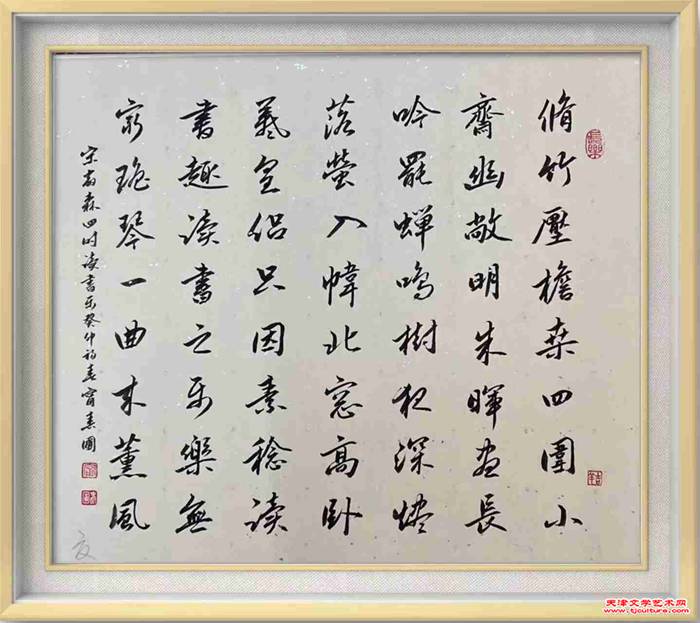 脩竹壓檐桑四圍小
齋幽敞明朱暉晝長
吟罷蟬鳴樹夜深燼
落螢入幃北窓高臥
羲皇侣只因素稔读
書趣读書之乐樂無
窮瑤琴一曲来薰風
宋翁森四时读書乐癸卯初春甯圃
夏
天津文学艺术网
www.tjculture.com